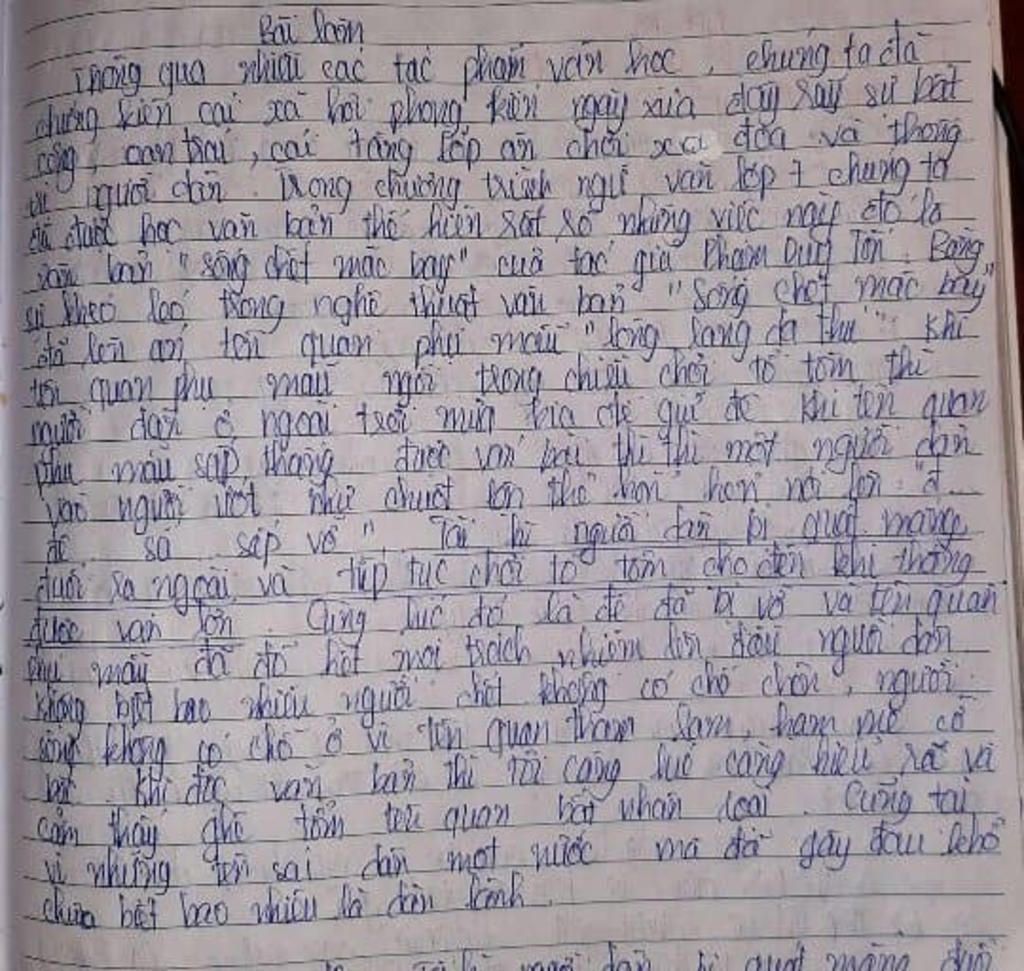 Bài làm
Thông qua nhiều các tác phẩm văn học, chúng ta đã
chứng kiến cái xã hội phong kiến ngày xưa đầy sẫy sự bất
công, oan trái, cái tầng lớp ăn chơi xa đọa và thống
trị người dân. Trong chương trình ngữ văn lớp 7 chúng ta
đã được học văn bản thể hiện sát số những việc này đó là
văn bản "sống chết mặc bay" của tác giả Phạm Duy Tốn. Bằng
sự khéo léo trong nghệ thuật văn bản "sống chết mặc bay"
đã lên án tên quan phụ mẫu "lòng lang dạ thú". Khi
tên quan phụ mẫu ngồi trong chiếu chơi tổ tôm thì
người dân ở ngoài trời mưa kia để giữ đê. Khi tên quan
phụ mẫu sắp thắng được ván bài thì thì một người dân
vào người ướt như chuột lột thở hổn hển nói lên "đ...
đê sa sắp vỡ". Tái hi người dân bị quát mắng
đuổi ra ngoài và tiếp tục chơi tổ tôm cho đến khi thắng
được ván lớn. Cùng lúc đó là đê đã bị vỡ và tên quan
phụ mẫu đã đổ hết mọi trách nhiệm lên đầu người dân
không biết bao nhiêu người chết không có chỗ chôn, người
sống không có chỗ ở vì tên quan tham lam, ham mê cờ
bạc. Khi đọc văn bản thì tôi càng lúc càng hiểu rõ và
cảm thấy ghê tởm tên quan bất nhân loại. Cũng tại
vì những tên sai dân một nước mà đã gây đau khổ
chưa biết bao nhiêu là dân lành.
người dân bị quát mắng đuổi